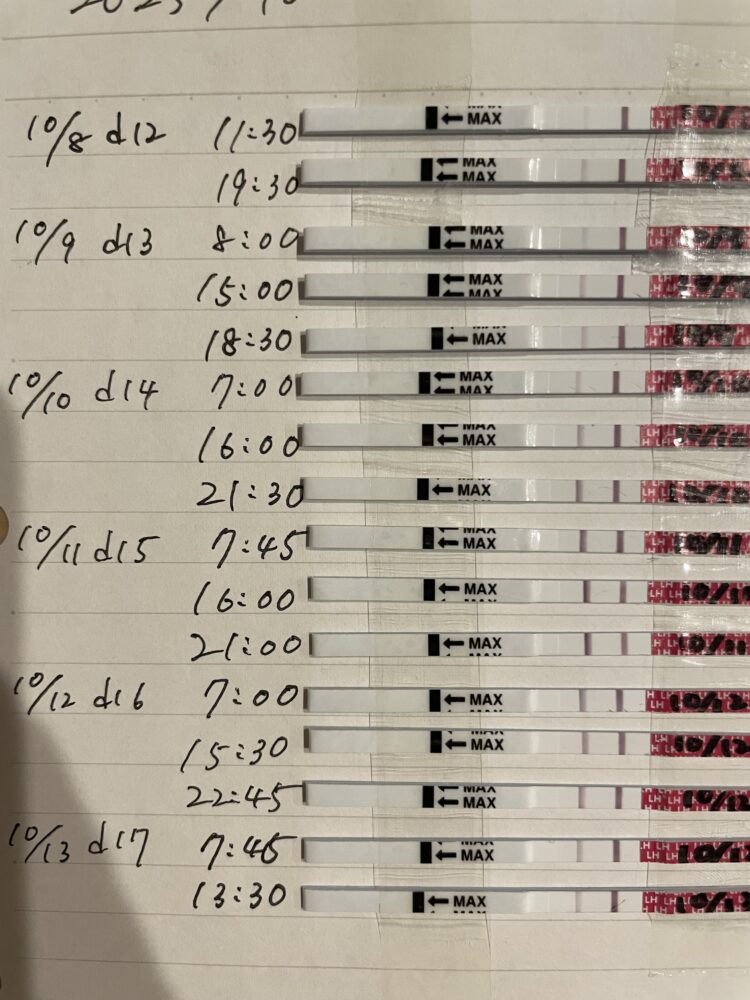 10/8 d12 11:30 MAX
19:30 MAX MAX
10/9 d13 8:00 MAX MAX
15:00 MAX MAX
18:30 MAX
10/10 d14 7:00 MAX MAX
16:00 MAX MAX
21:30 MAX
10/11 d15 7:45 MAX MAX 10/11
16:00 MAX 10/11
21:00 MAX 10/11
10/12 d16 7:00 MAX 10/12
15:30 MAX 10/12
22:45 MAX MAX 10/12
10/13 d17 7:45 MAX MAX LH
13:30 MAX MAX 10/13